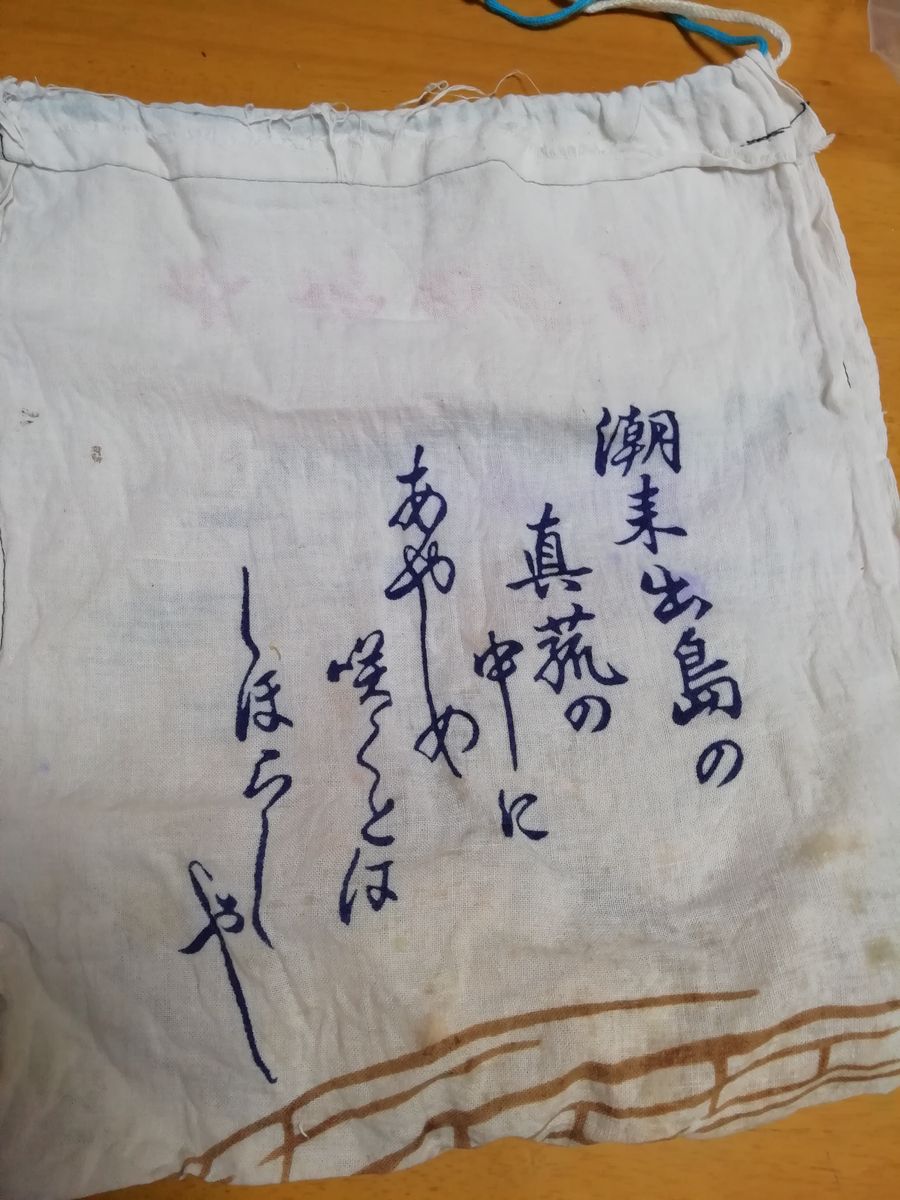 潮来出島の
真菰の
中に
あやしめ
咲くとは
しほらしや